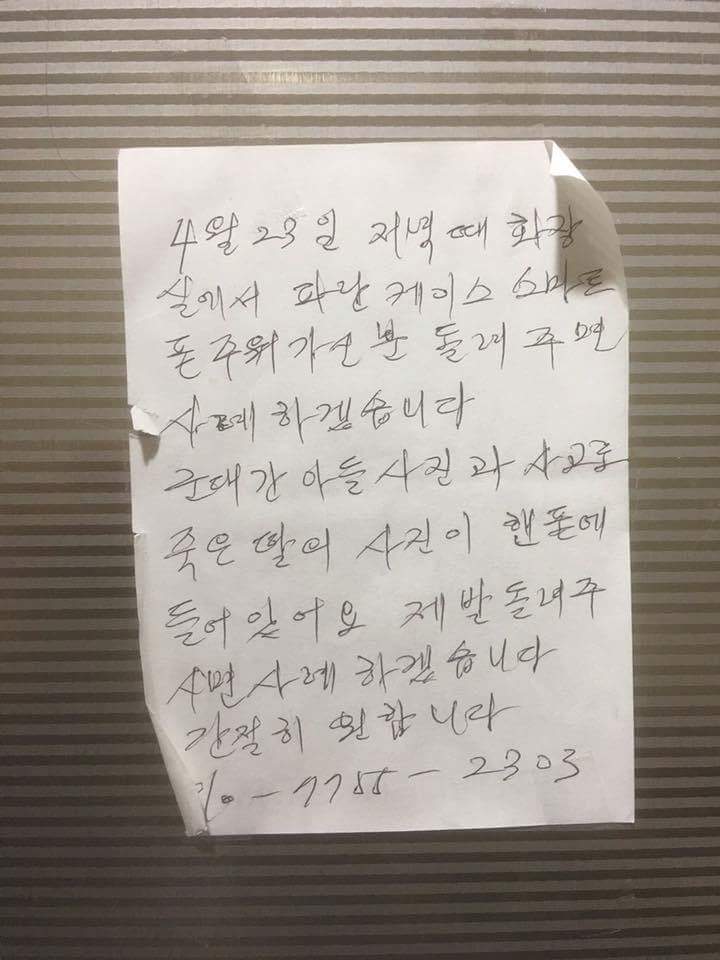 4월 23일 저녁때 화장
실에서 파란 케이스 스마트
폰 주워 가신 분 돌려 주면
사례 하겠습니다
군대간 아들 사진과 사고로
죽은 딸의 사진이 핸폰에
들어 있어요 제발 돌려주
시면 사례 하겠습니다
간절히 원합니다
010-7755-2303